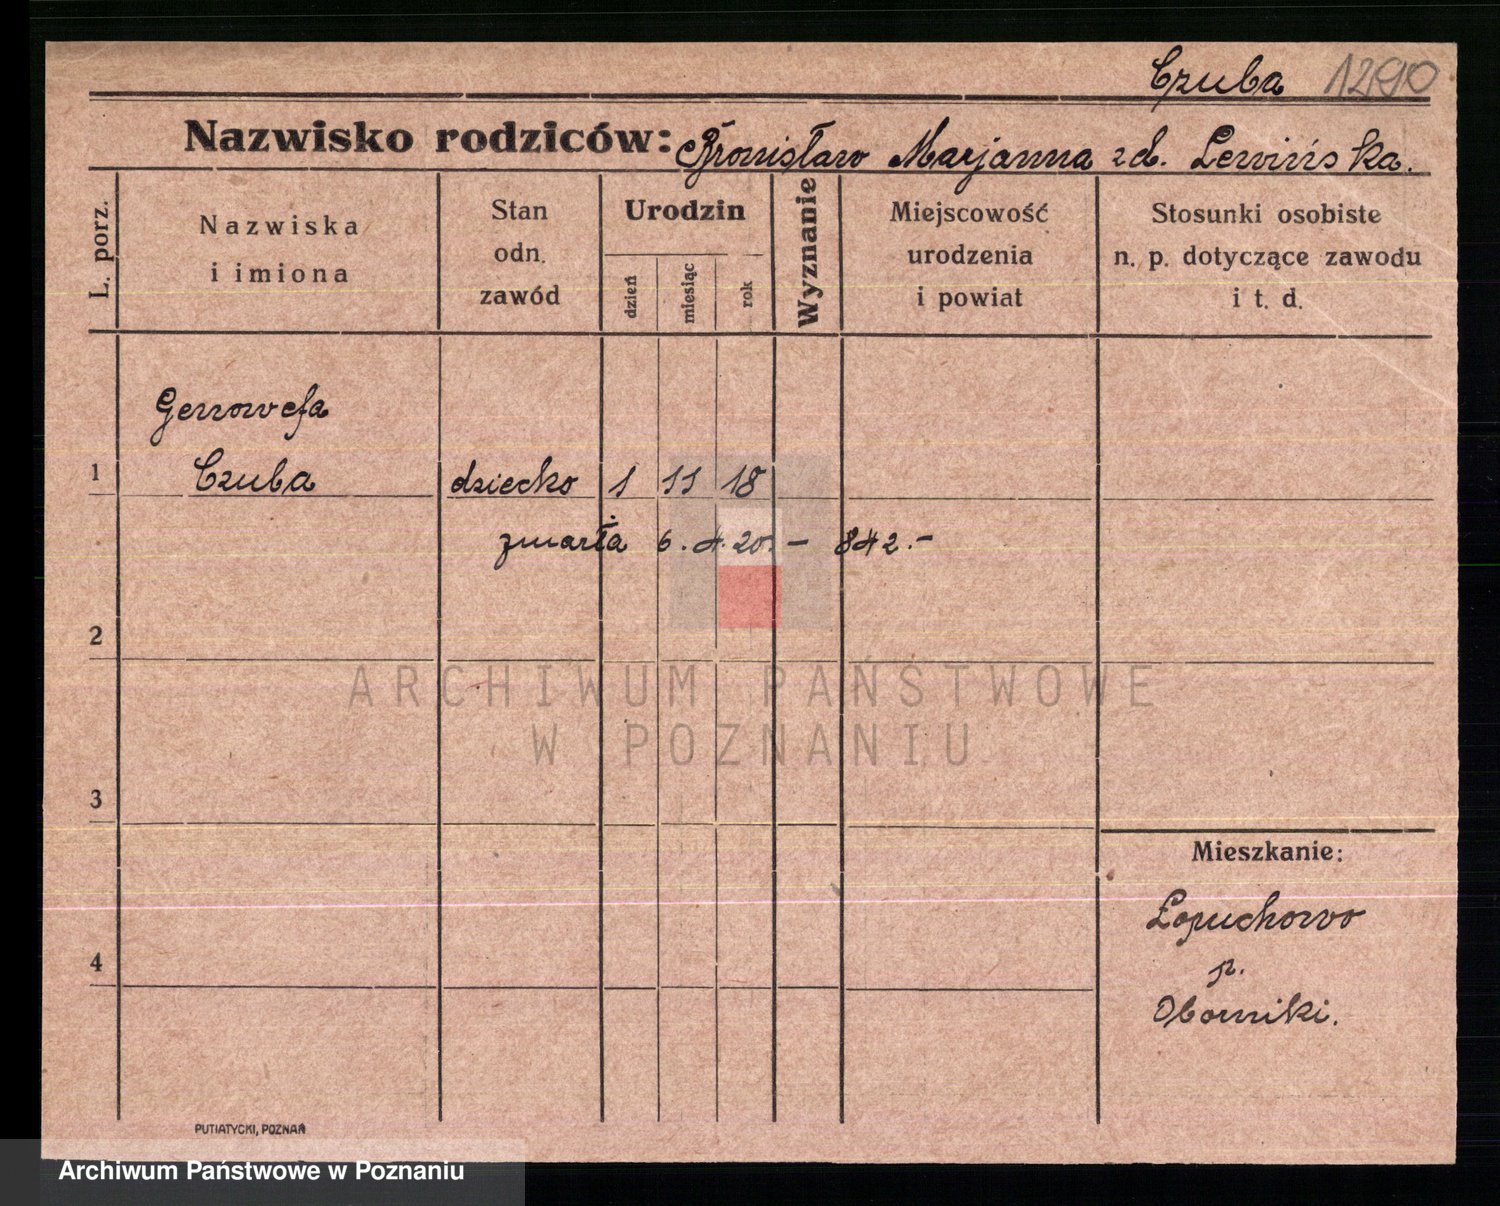 Czuba 1290
Nazwisko rodziców: Bronisław Marjanna zd. Lewińska.
L. porz.
Nazwiska
i imiona
Stan
odn.
zawód
Urodzin
dzień
miesiąc
rok
Wyznanie
Miejscowość
urodzenia
i powiat
Stosunki osobiste
n. p. dotyczące zawodu
i t. d.
Genowefa
1 Czuba dziecko 1 11 18
zmarła 6. 4. 20. – 842.–
2
ARCHIWUM PAŃSTWOWE
W POZNANIU
3
Mieszkanie:
Łopuchowo
4 p.
Oborniki.
PUTIATYCKI, POZNAŃ
Archiwum Państwowe w Poznaniu